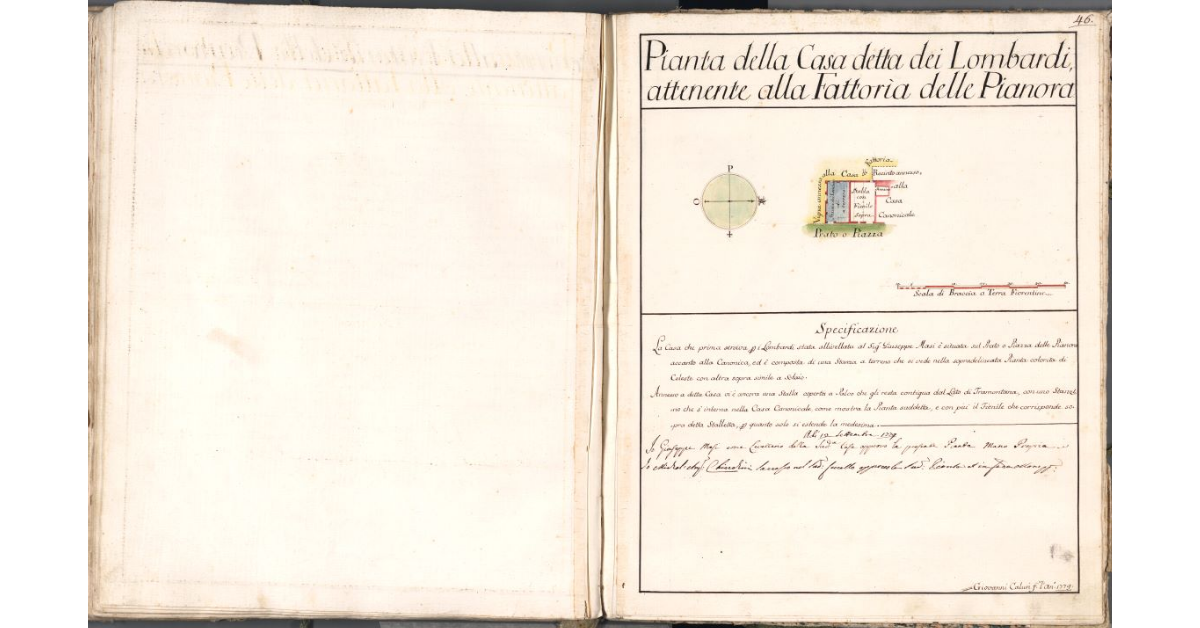 46.
Pianta della Casa detta dei Lombardi,
attenente alla Fattoria delle Pianora
P
O
Fattoria
alla Casa di
Recinto annesso,
alla
Casa
Canonicale
Vigna annessa
Stalla
con
Fienile
sopra
Prato o Piazza
Scala di Braccia a Terra Fiorentine
Specificazione
La Casa che prima serviva p i Lombardi, stata allivellata al Sig Giuseppe Masi è situata sul Prato o Piazza delle Pianora
accanto alla Canonica, ed è composta di una Stanza a terreno che si vede nella sopradelineata Pianta colorita di
Celeste con altra sopra simile a Solaio.
Annessa a detta Casa vi è ancora una Stalla coperta a Palco che gli resta contigua dal Lato di Tramontana, con uno Stanzol
ino che s'interna nella Casa Canonicale, come mostra la Pianta suddetta, e con più il Fienile che corrisponde so
pra detta Stalletta, p quanto solo si estende la medesima.
A di 19 Settembre 1779
Io Giuseppe Masi come Livellario della Sud Casa approvo la presente Pianta Mano Propria
Io
Giovanni Caluri f. l'An: 1779.